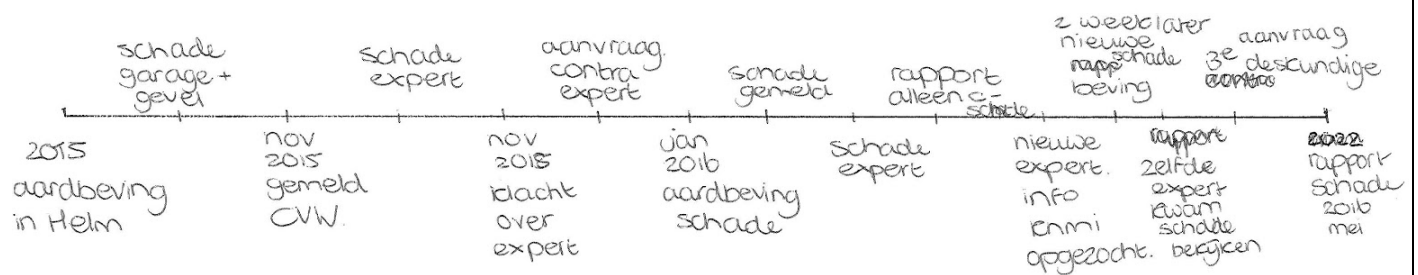 schade
garage +
gevel
schade
expert
aanvraag
contra
expert
schade
gemeld
rapport
alleen c-
schade
2 week later
nieuwe
schade
beving
aanvraag
3e deskundige
2015
aardbeving
in Helm
nov
2015
gemeld
CVW.
nov
2015
klacht
over
expert
jan
2016
aardbeving
schade
schade
expert
nieuwe
expert.
info
knmi
opgezocht.
rapport
zelfde
expert
kwam
schade
bekijken
rapport
schade
2016
mei